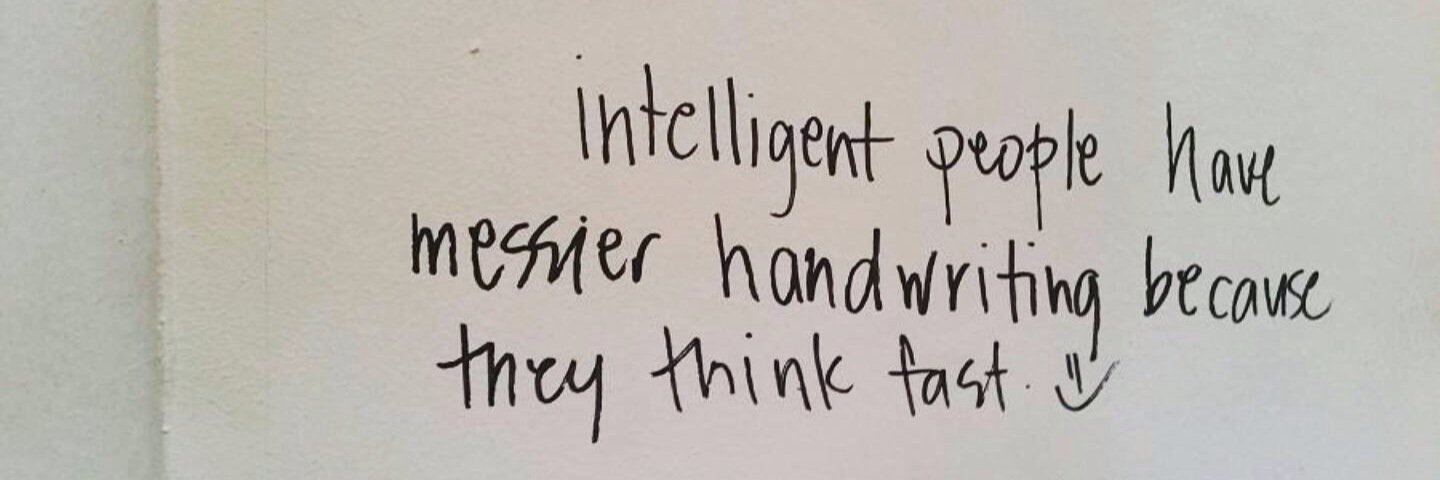 intelligent people have
messier handwriting because
they think fast. :)